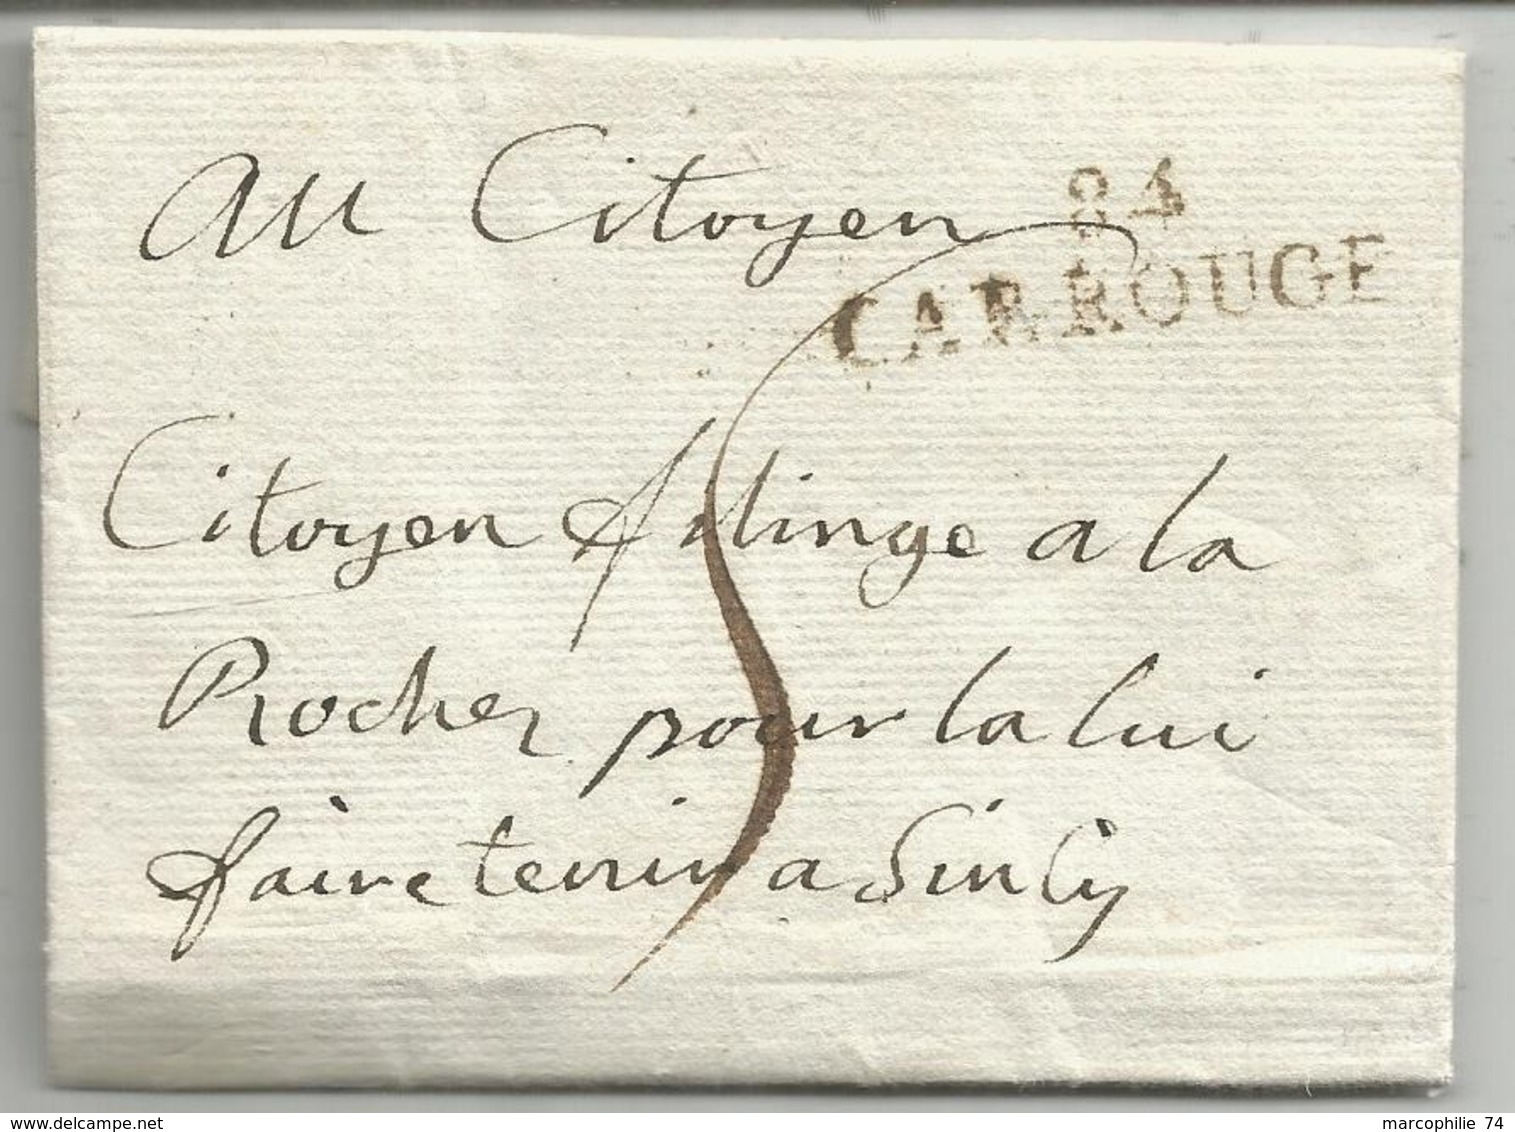 au Citoyen
84
CARROUGE
Citoyen a la
Rocher pour la lui
faire tenir a Sinty
www.delcampe.net
marcophilie 74